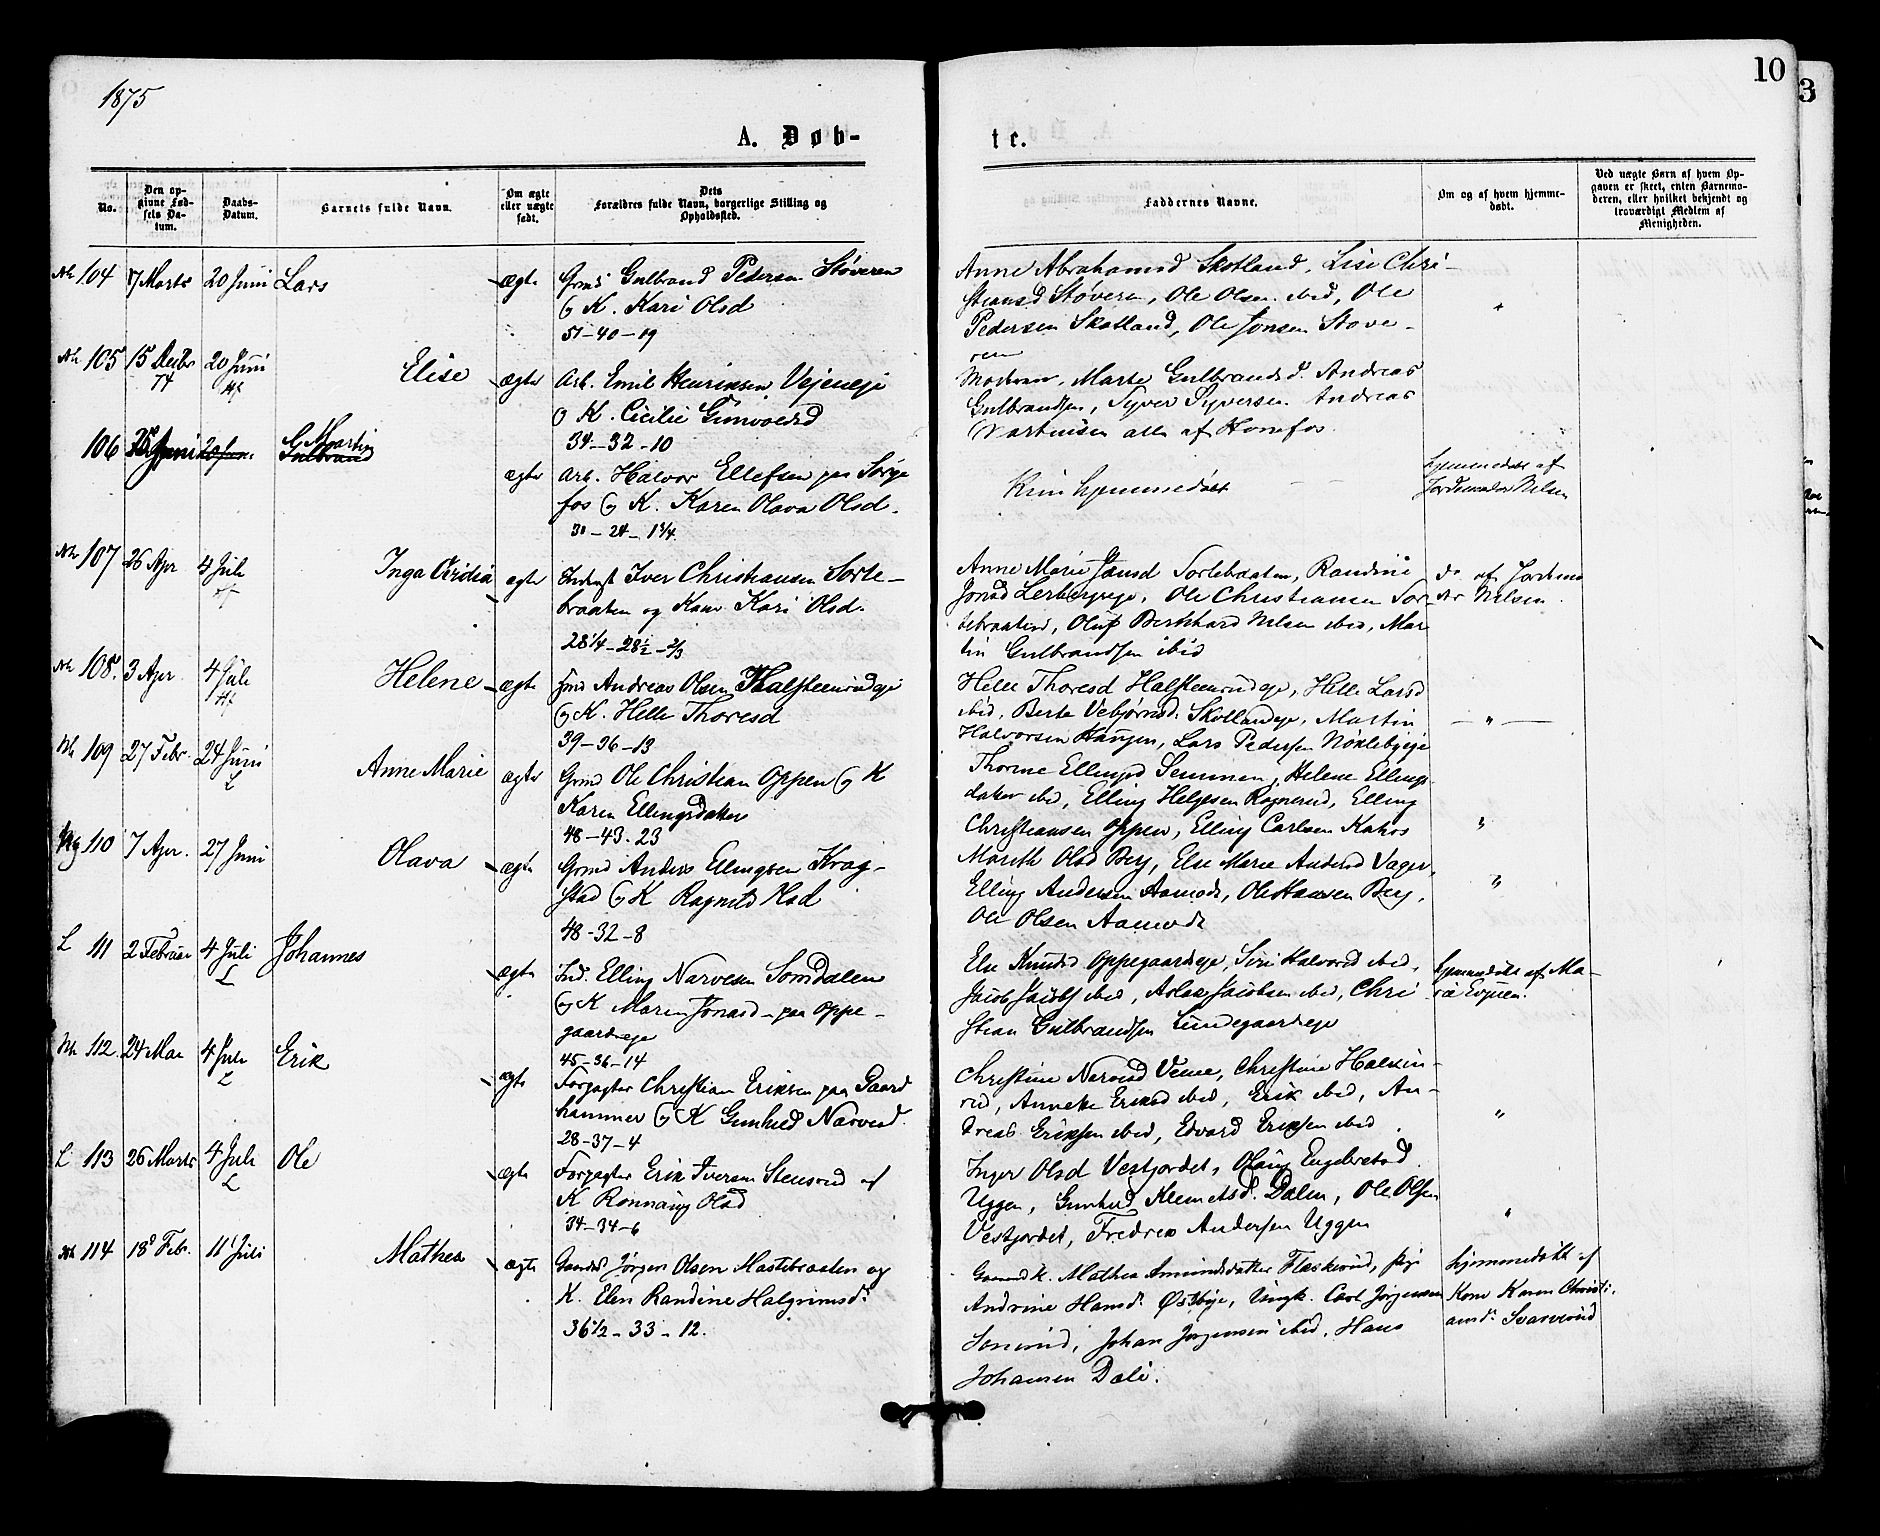 1875
10
3
A. Døb-
te.
No.
Den op-
givne Fød-
sels Da-
tum.
Daabs-
Datum.
Barnets fulde Navn.
Om ægte
eller uægte
født.
Dets
Forældres fulde Navn, borgerlige Stilling og
Opholdssted.
Faddernes Navne.
Om og af hvem hjemme-
døbt.
Ved uægte Børn af hvem Op-
gaven er skeet, enten Barnemo-
deren, eller hvilket bekjendt og
troværdigt Medlem af
Menigheden.
104 7 Marts 20 Juni Lars ægte Gmd Gulbrand Pedersen Støveren
K. Kari Olsd
51-40-19
Anne Abrahamsd Skotland, Lise Chri-
stiansd Støveren, Ole Olsen ibid, Ole
Pedersen Skotland, Ole Jonsen Støve-
ren
105 15 Decbr 74 20 Juni Elise ægte Arb. Emil Henriksen Vejeneje
K. Cicilie
34-32-10
Moderen, Marte Gulbrandsd. Andreas
Gulbrandsen, Syver Syversen Andreas
Martinsen alle af Hønefos.
106 Juni G. Martin
Gulbrand
ægte Arb. Halvor Ellefsen paa
fos K. Karen Olava Olsd.
30-24-1 3/4
Kun hjemmedøbt
hjemmedøbt af
Jordemoder Nelsen
107 26 Apr 4 Juli Inga ægte Inderst Iver Christiansen Sorte-
braaten og Kone Kari Olsd.
28 1/4-28 1/2-2/3
Anne Marie Jansd Sortebraaten, Randine
Jonsd Lerbergeje, Ole Christiansen Sor-
tebraaten, Oluf Bernhard Nelsen ibid, Mar
tin Gulbrandsen ibid
do af Jordemo
der Nelsen.
108. 3 Apr 4 Juli Helene ægte Andreas Olsen Halsteenrudeje
K. Helle Thoresd
39-36-13
Helle Thoresd Halsteenrudeje, Helle Larsd
ibid, Berte Vebjørnsd. Skotlandeje, Martin
Halvorsen Haugen, Lars Pedersen Nøklebyeje
— " —
109 27 Febr. 24 Juni L Anne Marie ægte Gmd Ole Christian Oppen K
Karen Ellingsdatter
48-43.23
Thorine Ellingsd Semmen, Helene Ellings
datter ibid, Elling Helgesen Rognerud, Elling
Christiansen Oppen, Elling Carlsen
"
110 7 Apr. 27 Juni Olava ægte Gmd Anders Ellingsen Krag-
stad K Ragnild
48-32-8
Marith Olsd Berg, Else Marie Andersd Vager,
Elling Andersen Aamodt, Ole Hansen Berg,
Ole Olsen Aamodt
"
L 111 2 Februar 4 Juli L Johannes
ægte Ind. Elling Narvesen Somdalen
K Maren Jonasd paa Oppe-
gaardeje
45-36-14
Else Knudsd Oppegaardeje, Siri Halvorsd ibid,
Jacob ibid, Aslak Jacobsen ibid, Chri
stian Gulbrandsen Lundegaardeje
hjemmedøbt af Ma-
rie Evjuen.
112. 24 Mai 4 Juli L Erik
ægte Forpagter Christian Eriksen paa Gaard
hammer K Gunhild Narvesd.
28-37-4
Christine Narvesd Veme, Christine
rud, Anneke Eriksd ibid, Erik ibid, An-
dreas Eriksen ibid, Edvard Eriksen ibid.
"
L 113 26 Marts 4 Juli L Ole
ægte Forpagter Erik Iversen Stensrud
K Rønnaug Olsd
34-34-6
Inger Olsd Vestjordet, Olaug Engebretsd
Uggen, Gunhild Klemetsd. Dælen, Ole Olsen
Vestjordet, Fredrik Andersen Uggen
"
114 18 Febr. 11 Juli Mathea ægte Jørgen Olsen Mastebraaten og
K. Elen Randine Halgrimsd.
36 1/2-33-12.
Gaardmd K. Mathea Amundsdatter Flaskerud, pige
Andrine Hansd. Østbye, Ungk. Carl Jørgensen
Johan Jørgensen ibid, Hans
Johansen Dæli.
hjemmedøbt af
Kone Karen Christi-
ansd. Svarverud